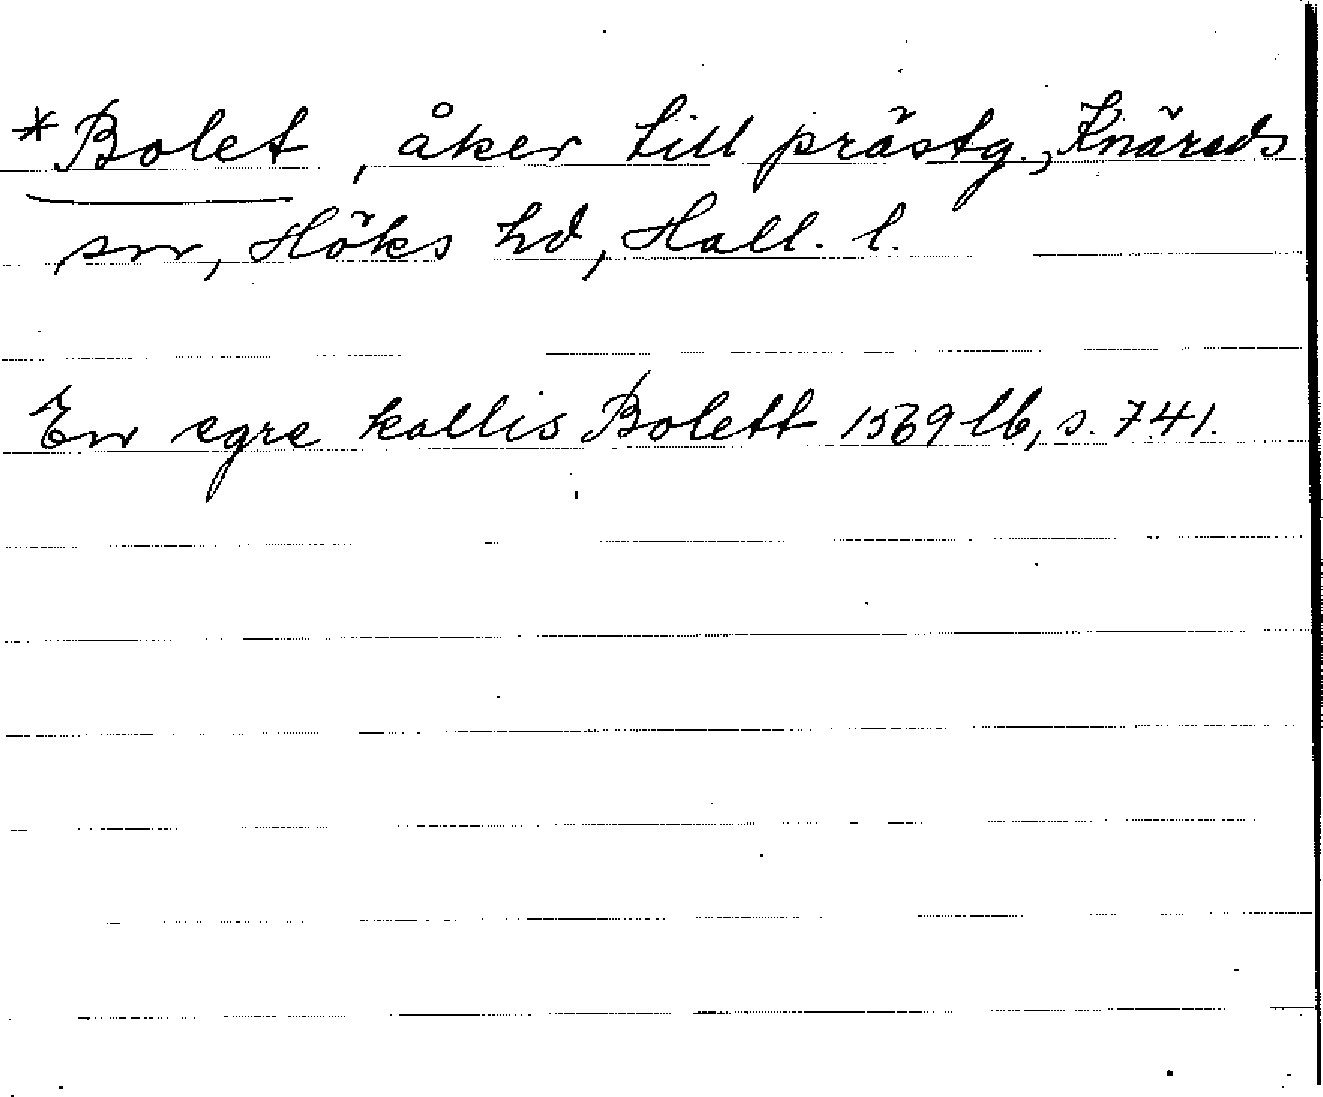 *Bolet, åker till prästg., Knäreds
sn, Höks hd, Hall. l.
En egre kallis Bolett 1569 lb, s. 741.